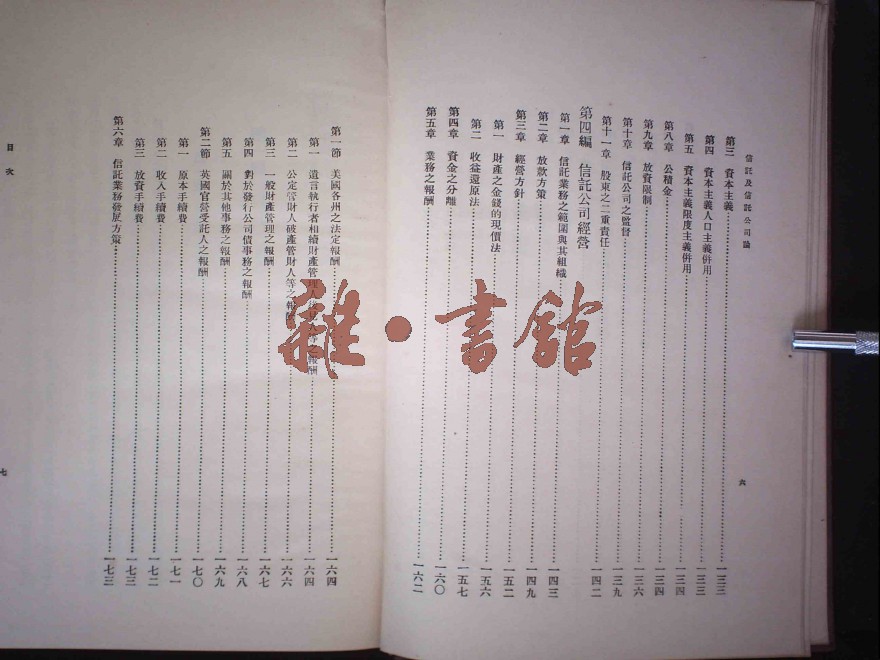 信託及信託公司論
第三 資本主義……一三三
第四 資本主義人口主義併用……一三三
第五 資本主義限度主義併用……一三四
第八章 公積金……一三四
第九章 放資限制……一三六
第十章 信託公司之監督……一三九
第十一章 股東之二重責任……一四二
第四編 信託公司經營
第一章 信託業務之範圍與其組織……一四三
第二章 放款方策……一四九
第三章 經營方針……一五二
第一 財產之金錢的現價法……一五六
第二 收益還原法……一五七
第四章 資金之分離……一六〇
第五章 業務之報酬……一六二
六
第一節 美國各州之法定報酬……一六四
第一 遺言執行者相續財產管理人報酬……一六四
第二 公定管財人破產管財人等之報酬……一六六
第三 一般財產管理之報酬……一六七
第四 對於發行公司債事務之報酬……一六八
第五 關於其他事務之報酬……一六九
第二節 英國官營受託人之報酬……一七〇
第一 原本手續費……一七一
第二 收入手續費……一七二
第三 放資手續費……一七三
第六章 信託業務發展方策……一七三
目次
七
雜·書館